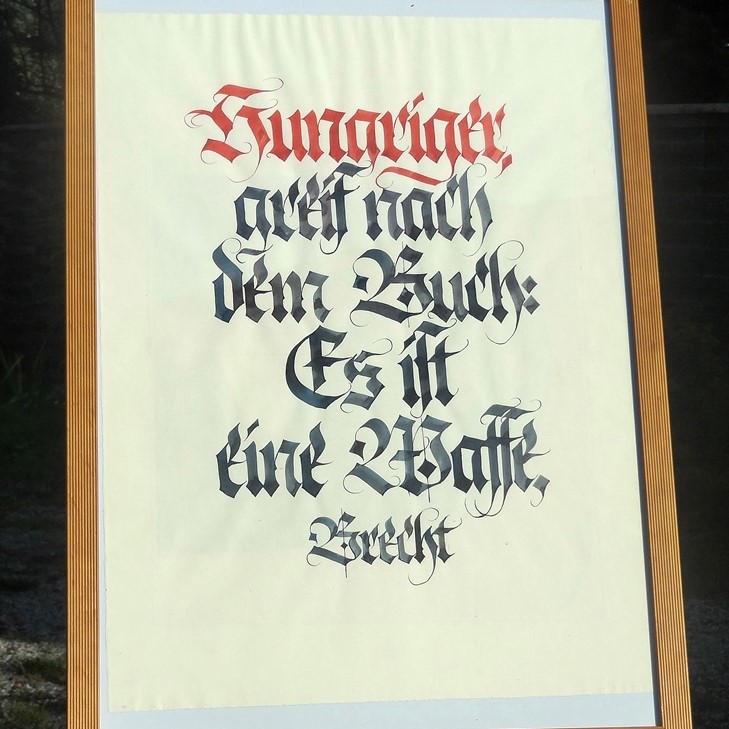 Hungriger,
greif nach
dem Buch:
Es iſt
eine Waffe,
Brecht